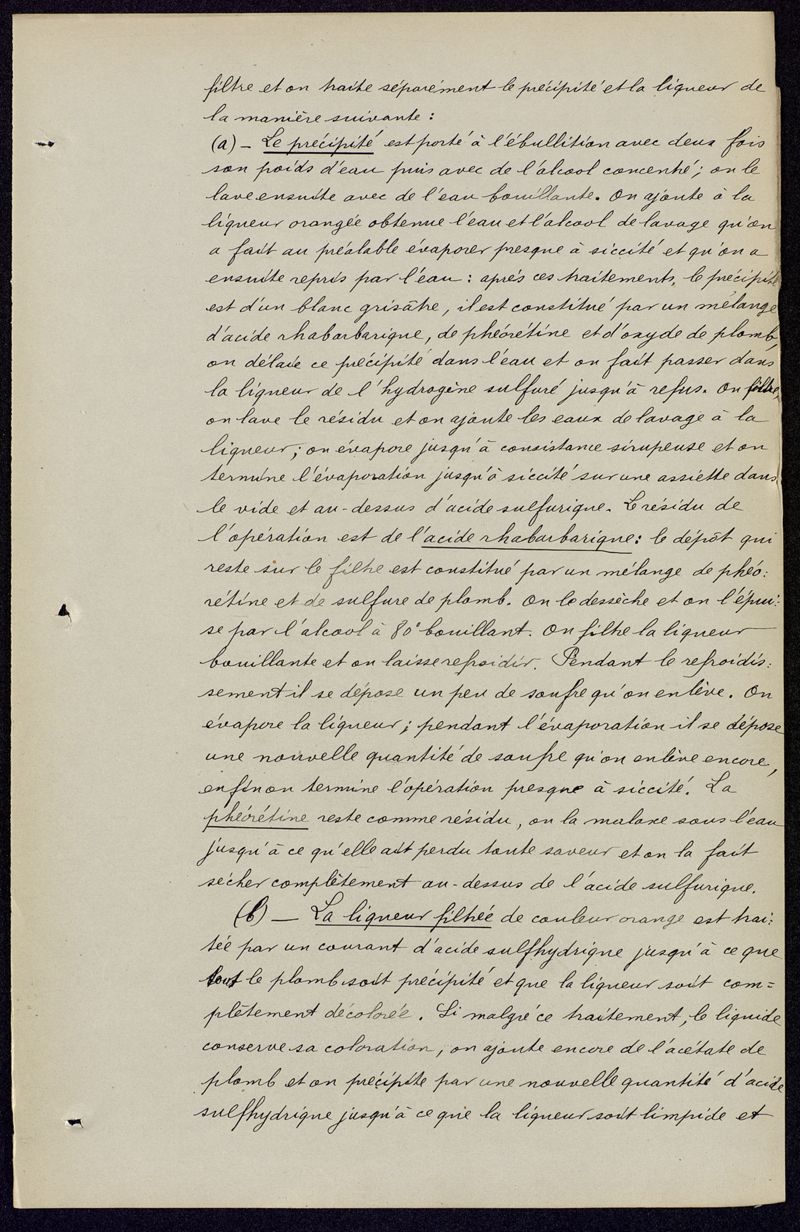 filtre et on traite séparément le précipité et la liqueur de
la manière suivante :
(a) – Le précipité est porté à l'ébullition avec deux fois
son poids d'eau puis avec de l'alcool concentré ; on le
lave ensuite avec de l'eau bouillante. On ajoute à la
liqueur orangée obtenue l'eau et l'alcool de lavage qu'on
a fait au préalable évaporer presque à siccité et qu'on a
ensuite repris par l'eau : après ces traitements, le précipité
est d'un blanc grisâtre, il est constitué par un mélange
d'acide rhabarbarique, de phéorétine et d'oxyde de plomb,
on délaie ce précipité dans l'eau et on fait passer dans
la liqueur de l'hydrogène sulfuré jusqu'à refus. On filtre,
on lave le résidu et on ajoute les eaux de lavage à la
liqueur ; on évapore jusqu'à consistance sirupeuse et on
termine l'évaporation jusqu'à siccité sur une assiette dans
le vide et au-dessus d'acide sulfurique. Le résidu de
l'opération est de l'acide rhabarbarique : le dépôt qui
reste sur le filtre est constitué par un mélange de phéo:
rétine et de sulfure de plomb. On le dessèche et on l'épui:
se par l'alcool à 80° bouillant. On filtre la liqueur
bouillante et on laisse refroidir. Pendant le refroidis:
sement il se dépose un peu de soufre qu'on enlève. On
évapore la liqueur ; pendant l'évaporation il se dépose
une nouvelle quantité de soufre qu'on enlève encore,
enfin on termine l'opération presque à siccité. La
phéorétine reste comme résidu, on la malaxe sous l'eau
jusqu'à ce qu'elle ait perdu toute saveur et on la fait
sécher complètement au-dessus de l'acide sulfurique.
(b) — La liqueur filtrée de couleur orange est trai:
tée par un courant d'acide sulfhydrique jusqu'à ce que
tout le plomb soit précipité et que la liqueur soit com=
plètement décolorée. Si malgré ce traitement, le liquide
conserve sa coloration, on ajoute encore de l'acétate de
plomb et on précipite par une nouvelle quantité d'acide
sulfhydrique jusqu'à ce que la liqueur soit limpide et